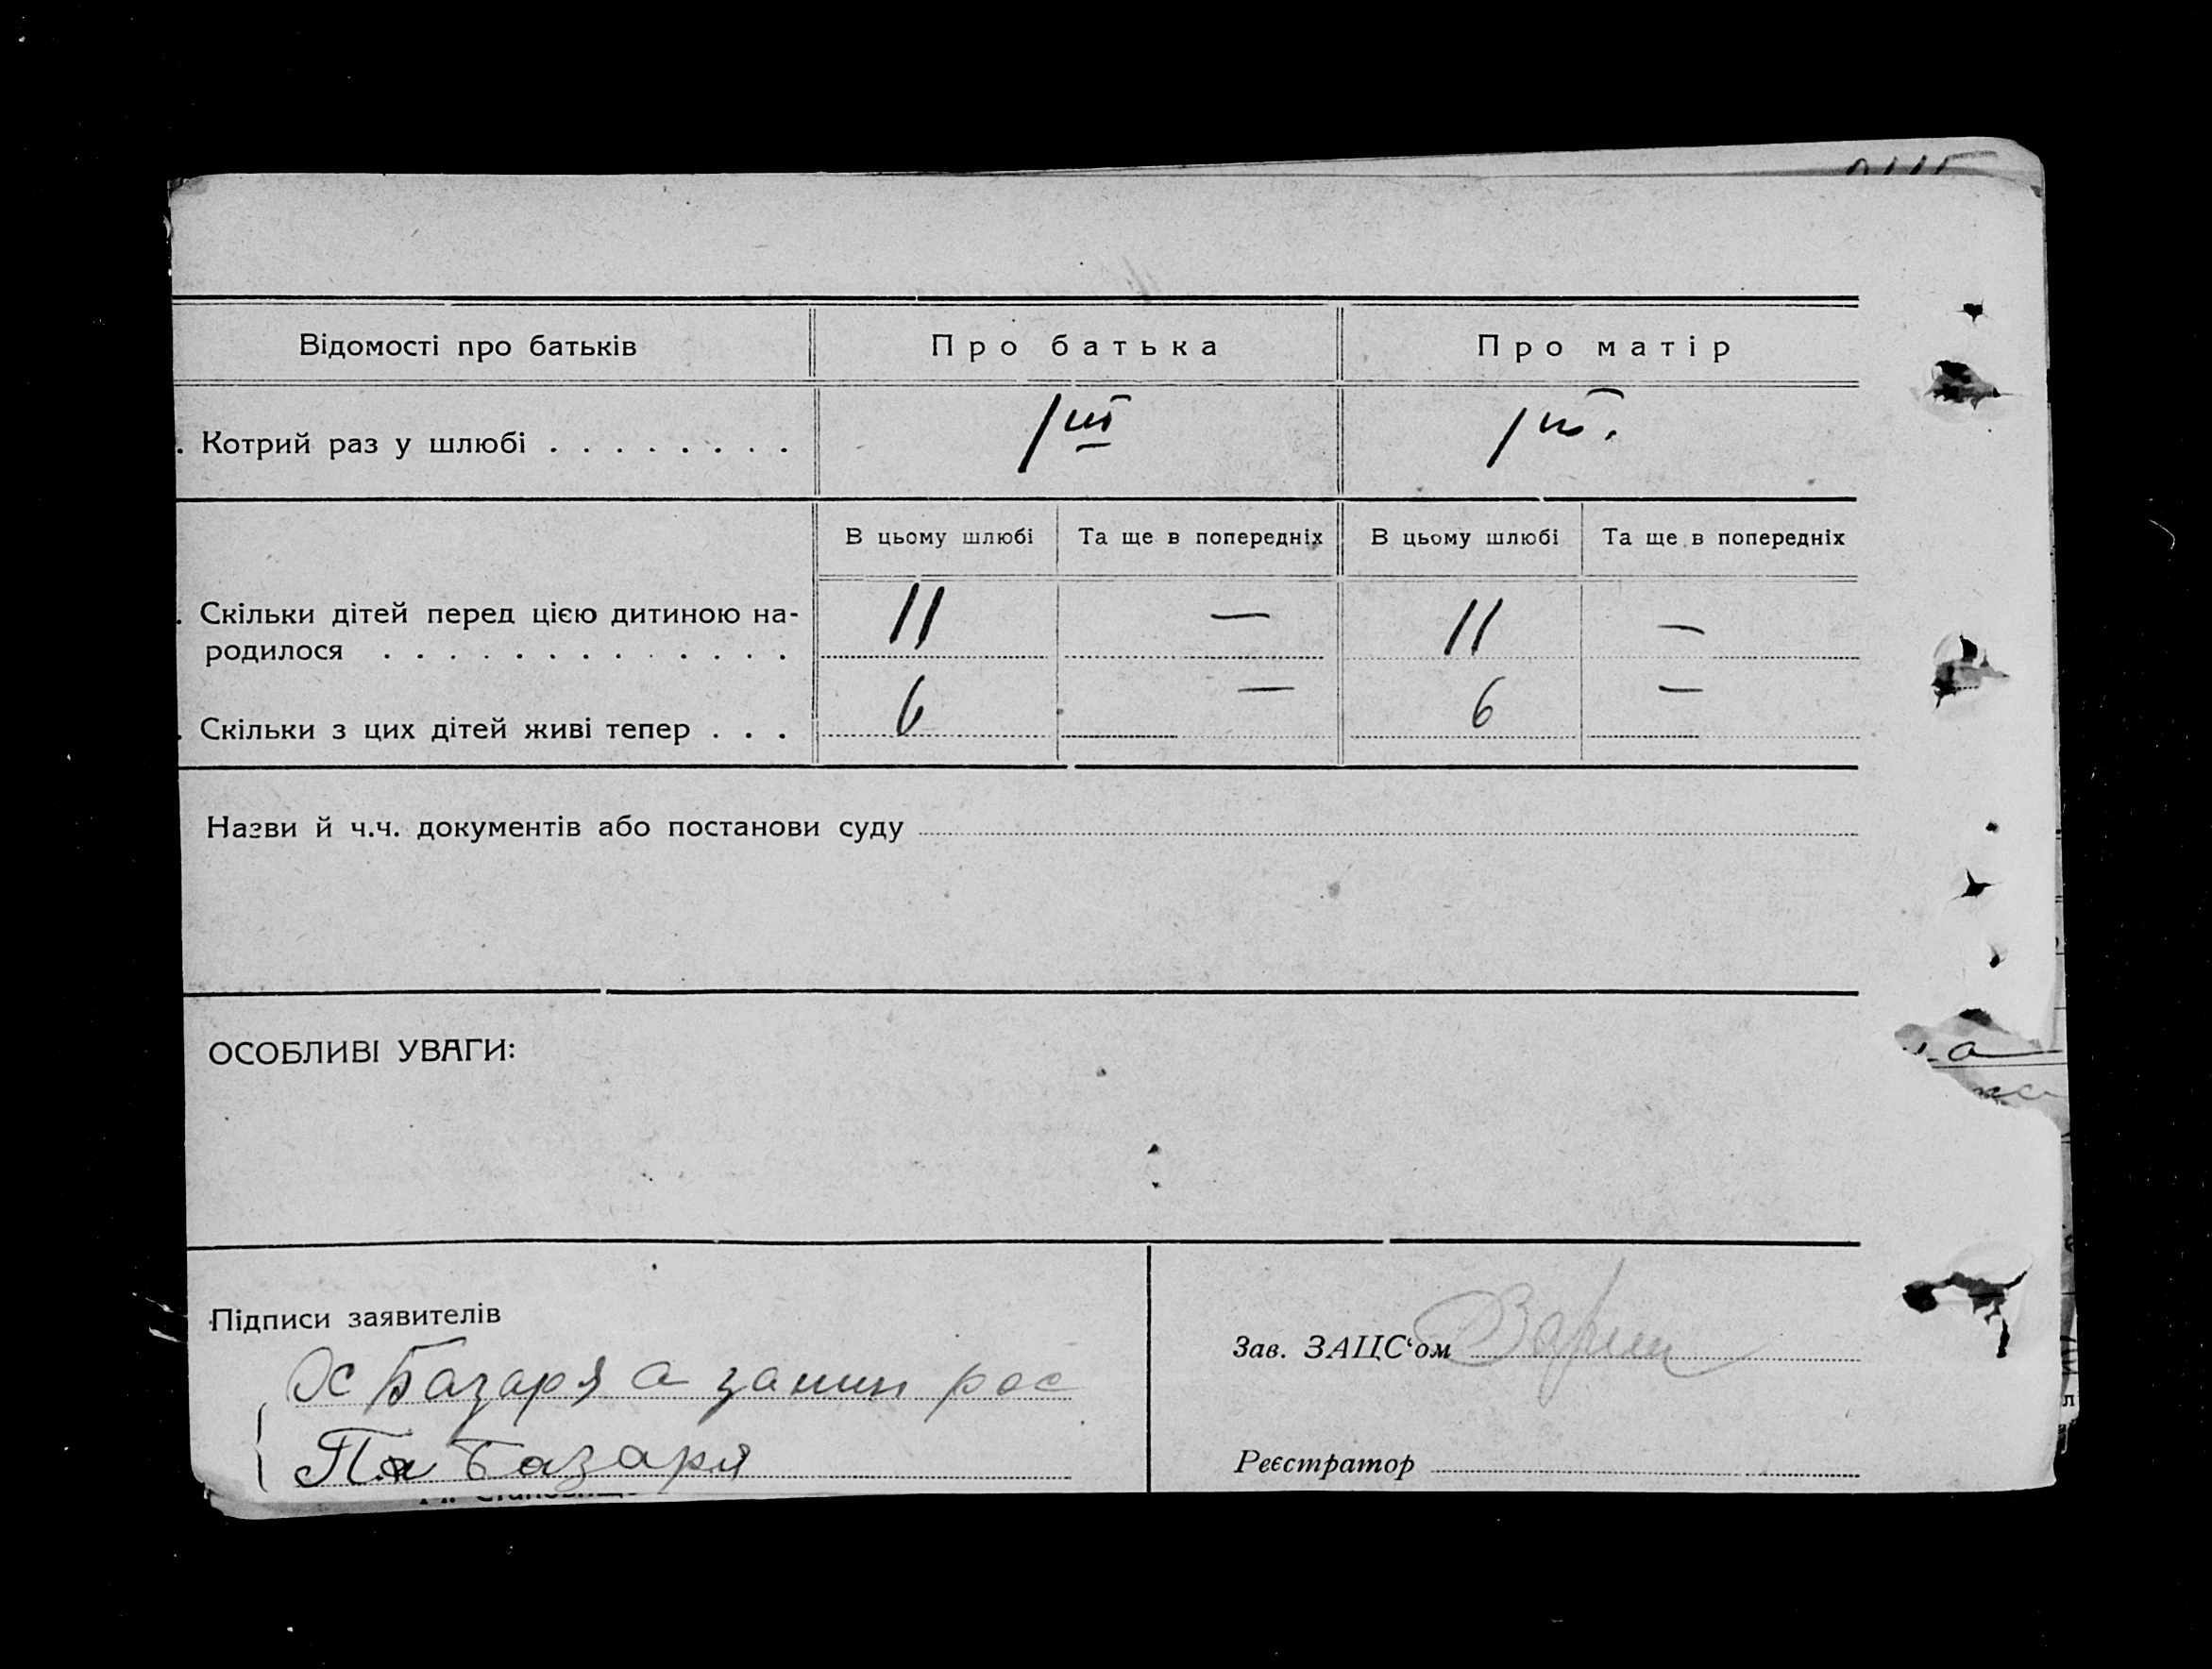 Відомості про батьків
Про батька
Про матір
Котрий раз у шлюбі . . . . . . . .
1ий
1ий.
В цьому шлюбі
Та ще в попередніх
В цьому шлюбі
Та ще в попередніх
Скільки дітей перед цією дитиною на-
родилося . . . . . . . . . . . . .
11
—
11
—
Скільки з цих дітей живі тепер . . .
6
—
6
—
Назви й ч.ч. документів або постанови суду
ОСОБЛИВІ УВАГИ:
Підписи заявителів
Ос Базаря а за
Па Базаря
Зав. ЗАЦС‘ом
Реєстратор